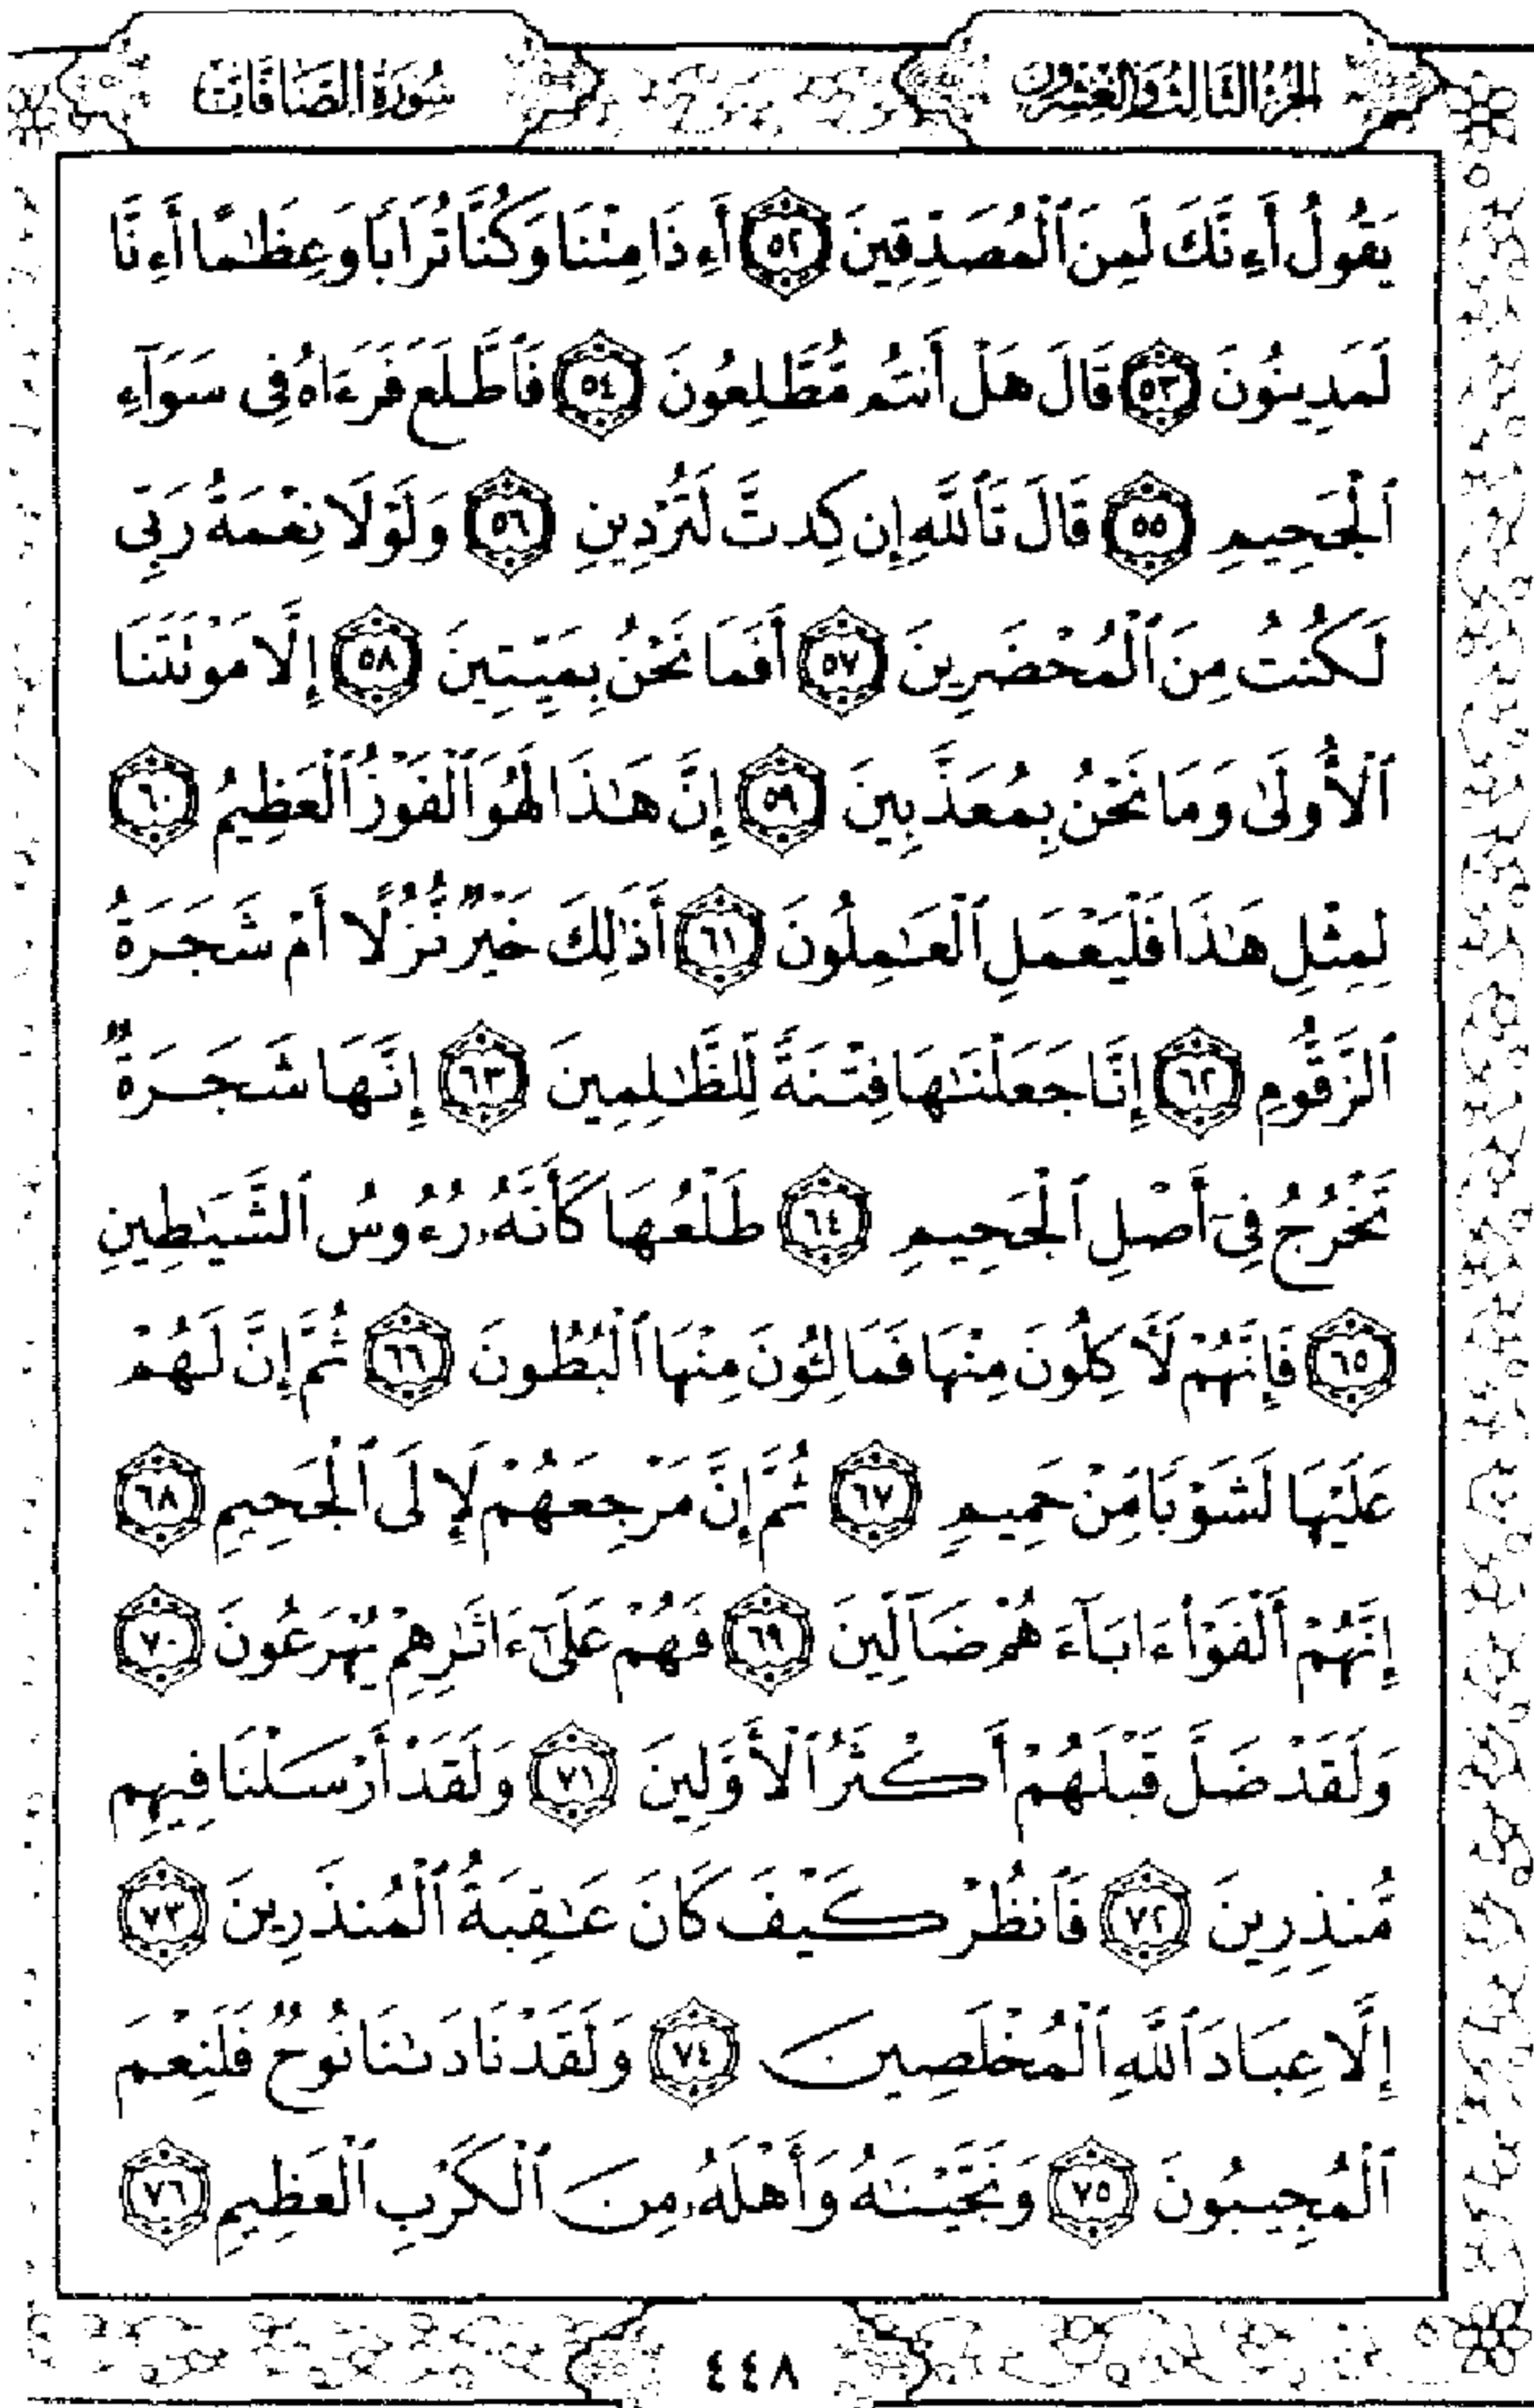 الجزء الثالث والعشرون
سورة الصافات
يَقُولُ أَءِنَّكَ لَمِنَ ٱلْمُصَدِّقِينَ ٥٢ أَءِذَا مِتْنَا وَكُنَّا تُرَابًا وَعِظَٰمًا أَءِنَّا
لَمَدِينُونَ ٥٣ قَالَ هَلْ أَنتُم مُّطَّلِعُونَ ٥٤ فَٱطَّلَعَ فَرَءَاهُ فِى سَوَآءِ
ٱلْجَحِيمِ ٥٥ قَالَ تَٱللَّهِ إِن كِدتَّ لَتُرْدِينِ ٥٦ وَلَوْلَا نِعْمَةُ رَبِّى
لَكُنتُ مِنَ ٱلْمُحْضَرِينَ ٥٧ أَفَمَا نَحْنُ بِمَيِّتِينَ ٥٨ إِلَّا مَوْتَتَنَا
ٱلْأُولَىٰ وَمَا نَحْنُ بِمُعَذَّبِينَ ٥٩ إِنَّ هَٰذَا لَهُوَ ٱلْفَوْزُ ٱلْعَظِيمُ ٦٠
لِمِثْلِ هَٰذَا فَلْيَعْمَلِ ٱلْعَٰمِلُونَ ٦١ أَذَٰلِكَ خَيْرٌ نُّزُلًا أَمْ شَجَرَةُ
ٱلزَّقُّومِ ٦٢ إِنَّا جَعَلْنَٰهَا فِتْنَةً لِّلظَّٰلِمِينَ ٦٣ إِنَّهَا شَجَرَةٌ
تَخْرُجُ فِىٓ أَصْلِ ٱلْجَحِيمِ ٦٤ طَلْعُهَا كَأَنَّهُۥ رُءُوسُ ٱلشَّيَٰطِينِ
٦٥ فَإِنَّهُمْ لَءَاكِلُونَ مِنْهَا فَمَالِـُٔونَ مِنْهَا ٱلْبُطُونَ ٦٦ ثُمَّ إِنَّ لَهُمْ
عَلَيْهَا لَشَوْبًا مِّنْ حَمِيمٍ ٦٧ ثُمَّ إِنَّ مَرْجِعَهُمْ لَإِلَى ٱلْجَحِيمِ ٦٨
إِنَّهُمْ أَلْفَوْا۟ ءَابَآءَهُمْ ضَآلِّينَ ٦٩ فَهُمْ عَلَىٰٓ ءَاثَٰرِهِمْ يُهْرَعُونَ ٧٠
وَلَقَدْ ضَلَّ قَبْلَهُمْ أَكْثَرُ ٱلْأَوَّلِينَ ٧١ وَلَقَدْ أَرْسَلْنَا فِيهِم
مُّنذِرِينَ ٧٢ فَٱنظُرْ كَيْفَ كَانَ عَٰقِبَةُ ٱلْمُنذَرِينَ ٧٣
إِلَّا عِبَادَ ٱللَّهِ ٱلْمُخْلَصِينَ ٧٤ وَلَقَدْ نَادَىٰنَا نُوحٌ فَلَنِعْمَ
ٱلْمُجِيبُونَ ٧٥ وَنَجَّيْنَٰهُ وَأَهْلَهُۥ مِنَ ٱلْكَرْبِ ٱلْعَظِيمِ ٧٦
٤٤٨